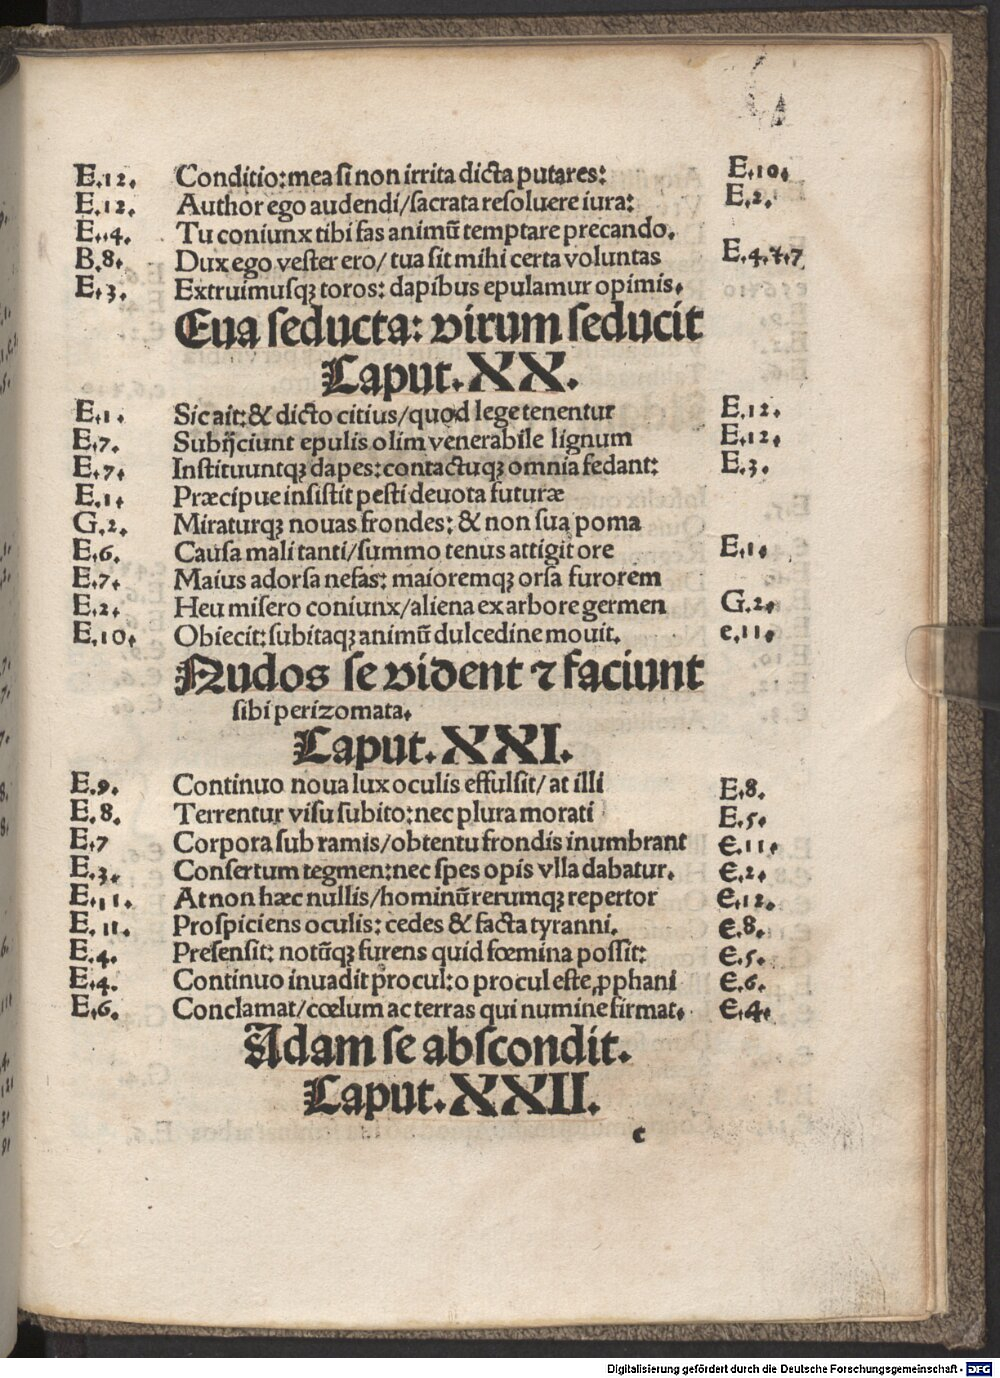 E.12. Conditio:mea si non irrita dicta putares: E.10.
E.12. Author ego audendi/sacrata resoluere iura: E.2.
E.4. Tu coniunx tibi fas animũ temptare precando.
B.8. Dux ego vester ero/ tua sit mihi certa voluntas E.4.⁊.7
E.3. Extruimusqꝫ toros: dapibus epulamur opimis.
Eua seducta: virum seducit
Caput. XX.
E.1. Sic ait:& dicto citius/quod lege tenentur E.12.
E.7. Subijciunt epulis olim venerabile lignum E.12.
E.7. Instituuntqꝫ dapes:contactuqꝫ omnia fedant: E.3.
E.1. Præcipue insistit pesti deuota futuræ
G.2. Miraturqꝫ nouas frondes: & non sua poma
E.6. Causa mali tanti/summo tenus attigit ore E.1.
E.7. Maius adorsa nefas: maioremqꝫ orsa furorem
E.2. Heu misero coniunx/aliena ex arbore germen G.2.
E.10. Obiecit:subitaqꝫ animũ dulcedine mouit. e.11.
Nudos se vident ⁊ faciunt
sibi perizomata.
Caput. XXI.
E.9. Continuo noua lux oculis effulsit/ at illi E.8.
E.8. Terrentur visu subito:nec plura morati E.5.
E.7 Corpora sub ramis/obtentu frondis inumbrant E.11.
E.3. Consertum tegmen:nec spes opis vlla dabatur. E.2.
E.11. At non hæc nullis/hominũ rerumqꝫ repertor E.12.
E.11. Prospiciens oculis: cedes & facta tyranni. E.8.
E.4. Presensit: notũqꝫ furens quid fœmina possit: E.5.
E.4. Continuo inuadit procul:o procul este ꝓphani E.6.
E.6. Conclamat/cœlum ac terras qui numine firmat. E.4.
Adam se abscondit.
Caput. XXII.
c
Digitalisierung gefördert durch die Deutsche Forschungsgemeinschaft - DFG